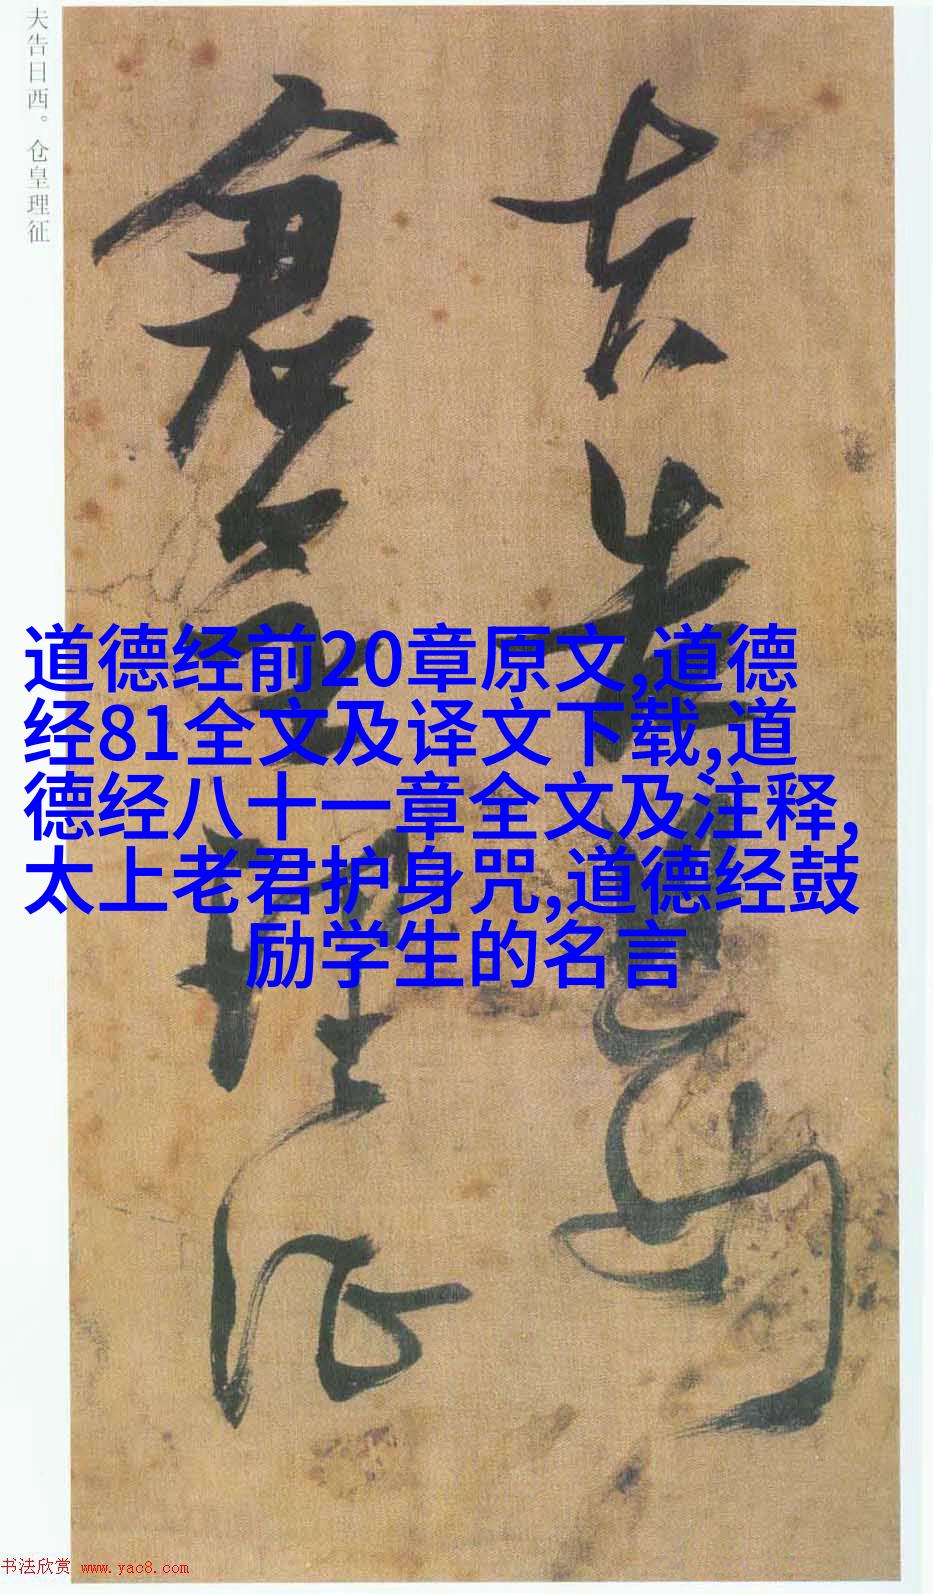 夫告日西。仓皇理征
夫告日西
倉皇理征
道德经前20章原文,道德
经81全文及译文下载,道
德经八十一章全文及注释,
太上老君护身咒,道德经鼓
励学生的名言
书法欣赏 www.yac8.com